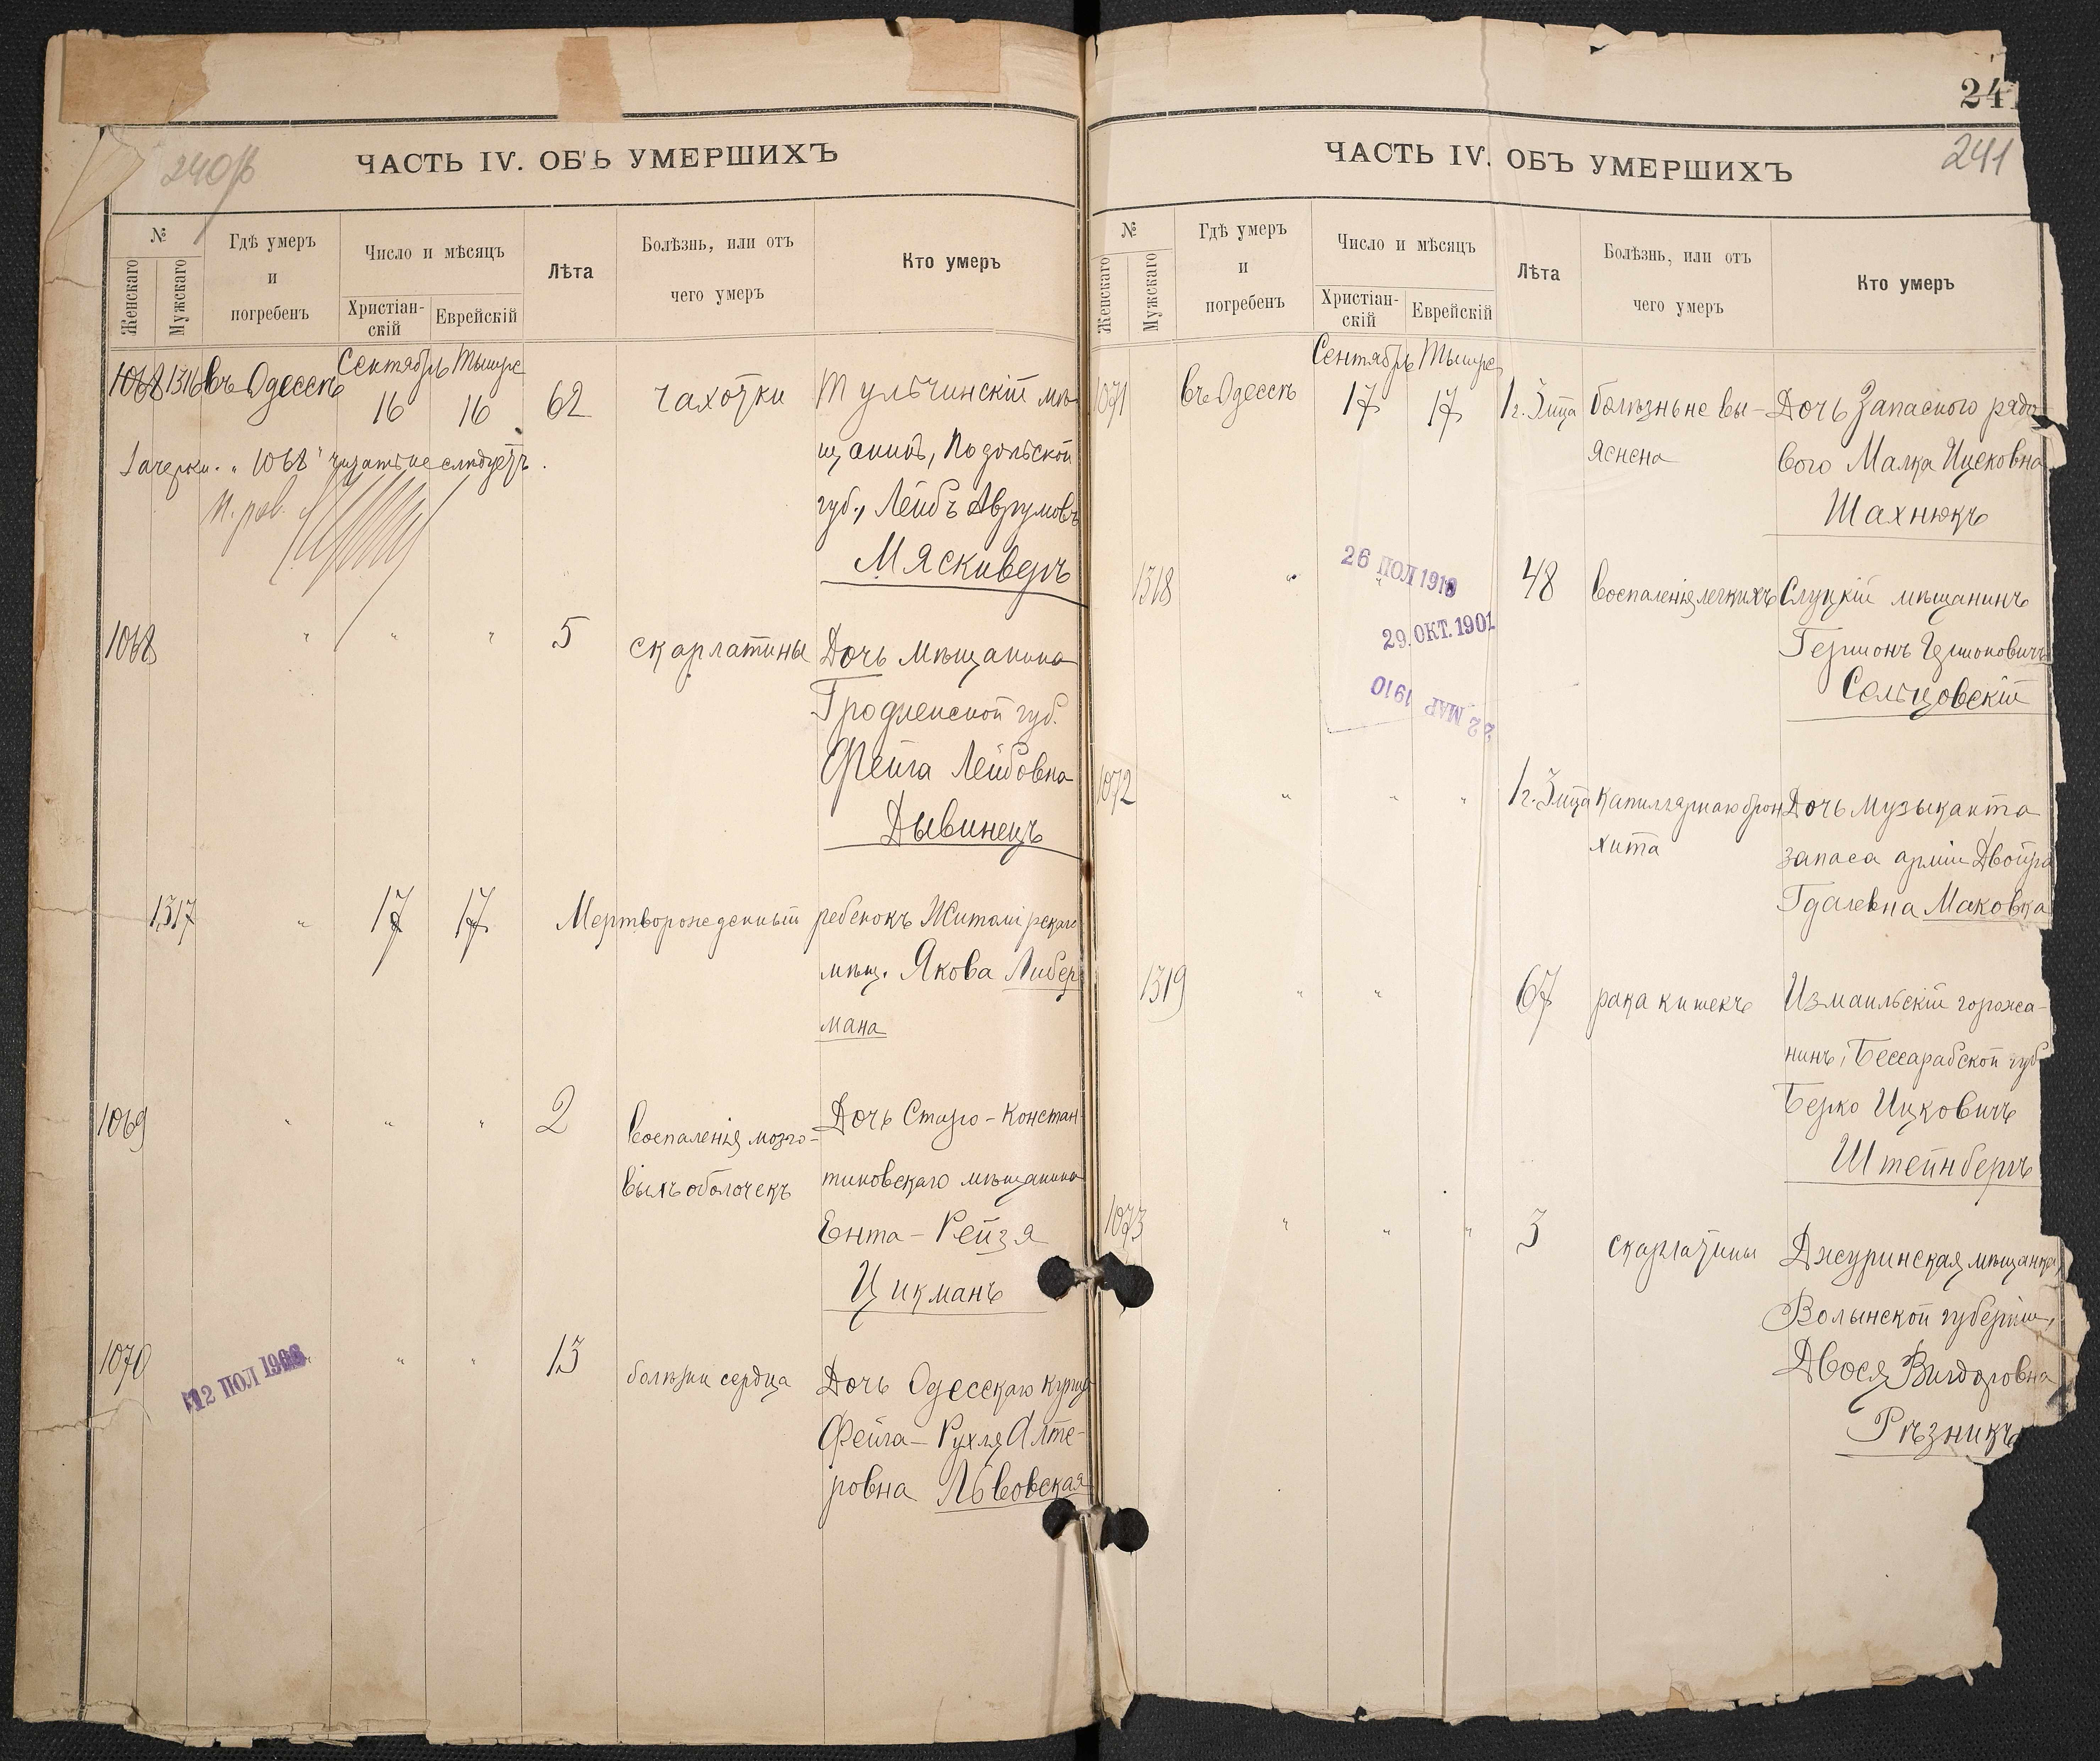 240об
ЧАСТЬ IV. ОБЪ УМЕРШИХЪ
№
Женскаго
Мужскаго
Гдѣ умеръ
и
погребенъ
Число и мѣсяцъ
Христіан-
скій
Еврейскій
Лѣта
Болѣзнь, или отъ
чего умеръ
Кто умеръ
Сентябрь Тышре
1068 1316 въ Одессѣ 16 16 62 чахотки Тульчинскій мѣ-
щанинъ, Подольской
Зачеркн. „1068" читать не слѣдуетъ.
губ., Лейбъ Аврумовъ
Мясковеръ
1068 " " " 5 скарлатины Дочь мѣщанина
Гродненской губ.
Фейга Лейбовна
Дывинецъ
1317 " 17 17 Мертворожденный ребенокъ Житомірскаго
мѣщ. Якова Либер
мана
1069 " " " 2 воспаленія мозго-
выхъ оболочекъ
Дочь Старо-Констан-
тиновскаго мѣщанина
Ента-Рейзя
Цикманъ
1070 " " " 13 болѣзни сердца Дочь Одесскаго купца
Фейга-Рухля Алте-
ровна Львовская
12 ПОЛ
24
241
ЧАСТЬ IV. ОБЪ УМЕРШИХЪ
№
Женскаго
Мужскаго
Гдѣ умеръ
и
погребенъ
Число и мѣсяцъ
Христіан-
скій
Еврейскій
Лѣта
Болѣзнь, или отъ
чего умеръ
Кто умеръ
Сентябрь Тышре
1071 въ Одессѣ 17 17 1 г. 3 мца болѣзнь не вы-
яснена
Дочь Запасного рядо-
вого Малка Ицековна
Шахнюкъ
26 ПОЛ 1910
29. ОКТ. 1901
22 МАР 1910
1318 " " 48 воспаленія легкихъ Слуцкій мѣщанинъ
Гершонъ Гершоновичъ
Сельцовскій
1072 " " " 1 г. 3 мца капиллярнаго брон
хита
Дочь музыканта
запаса арміи Двойра
Гдалевна Маковка
1319 " " 67 рака кишекъ Измаильскій горожа-
нинъ, Бессарабской губ
Берко Ицковичъ
Штейнбергъ
1073 " " " 3 скарлатины Джуринская мѣщанка,
Волынской губерніи,
Двося Вигдоровна
Рѣзникъ